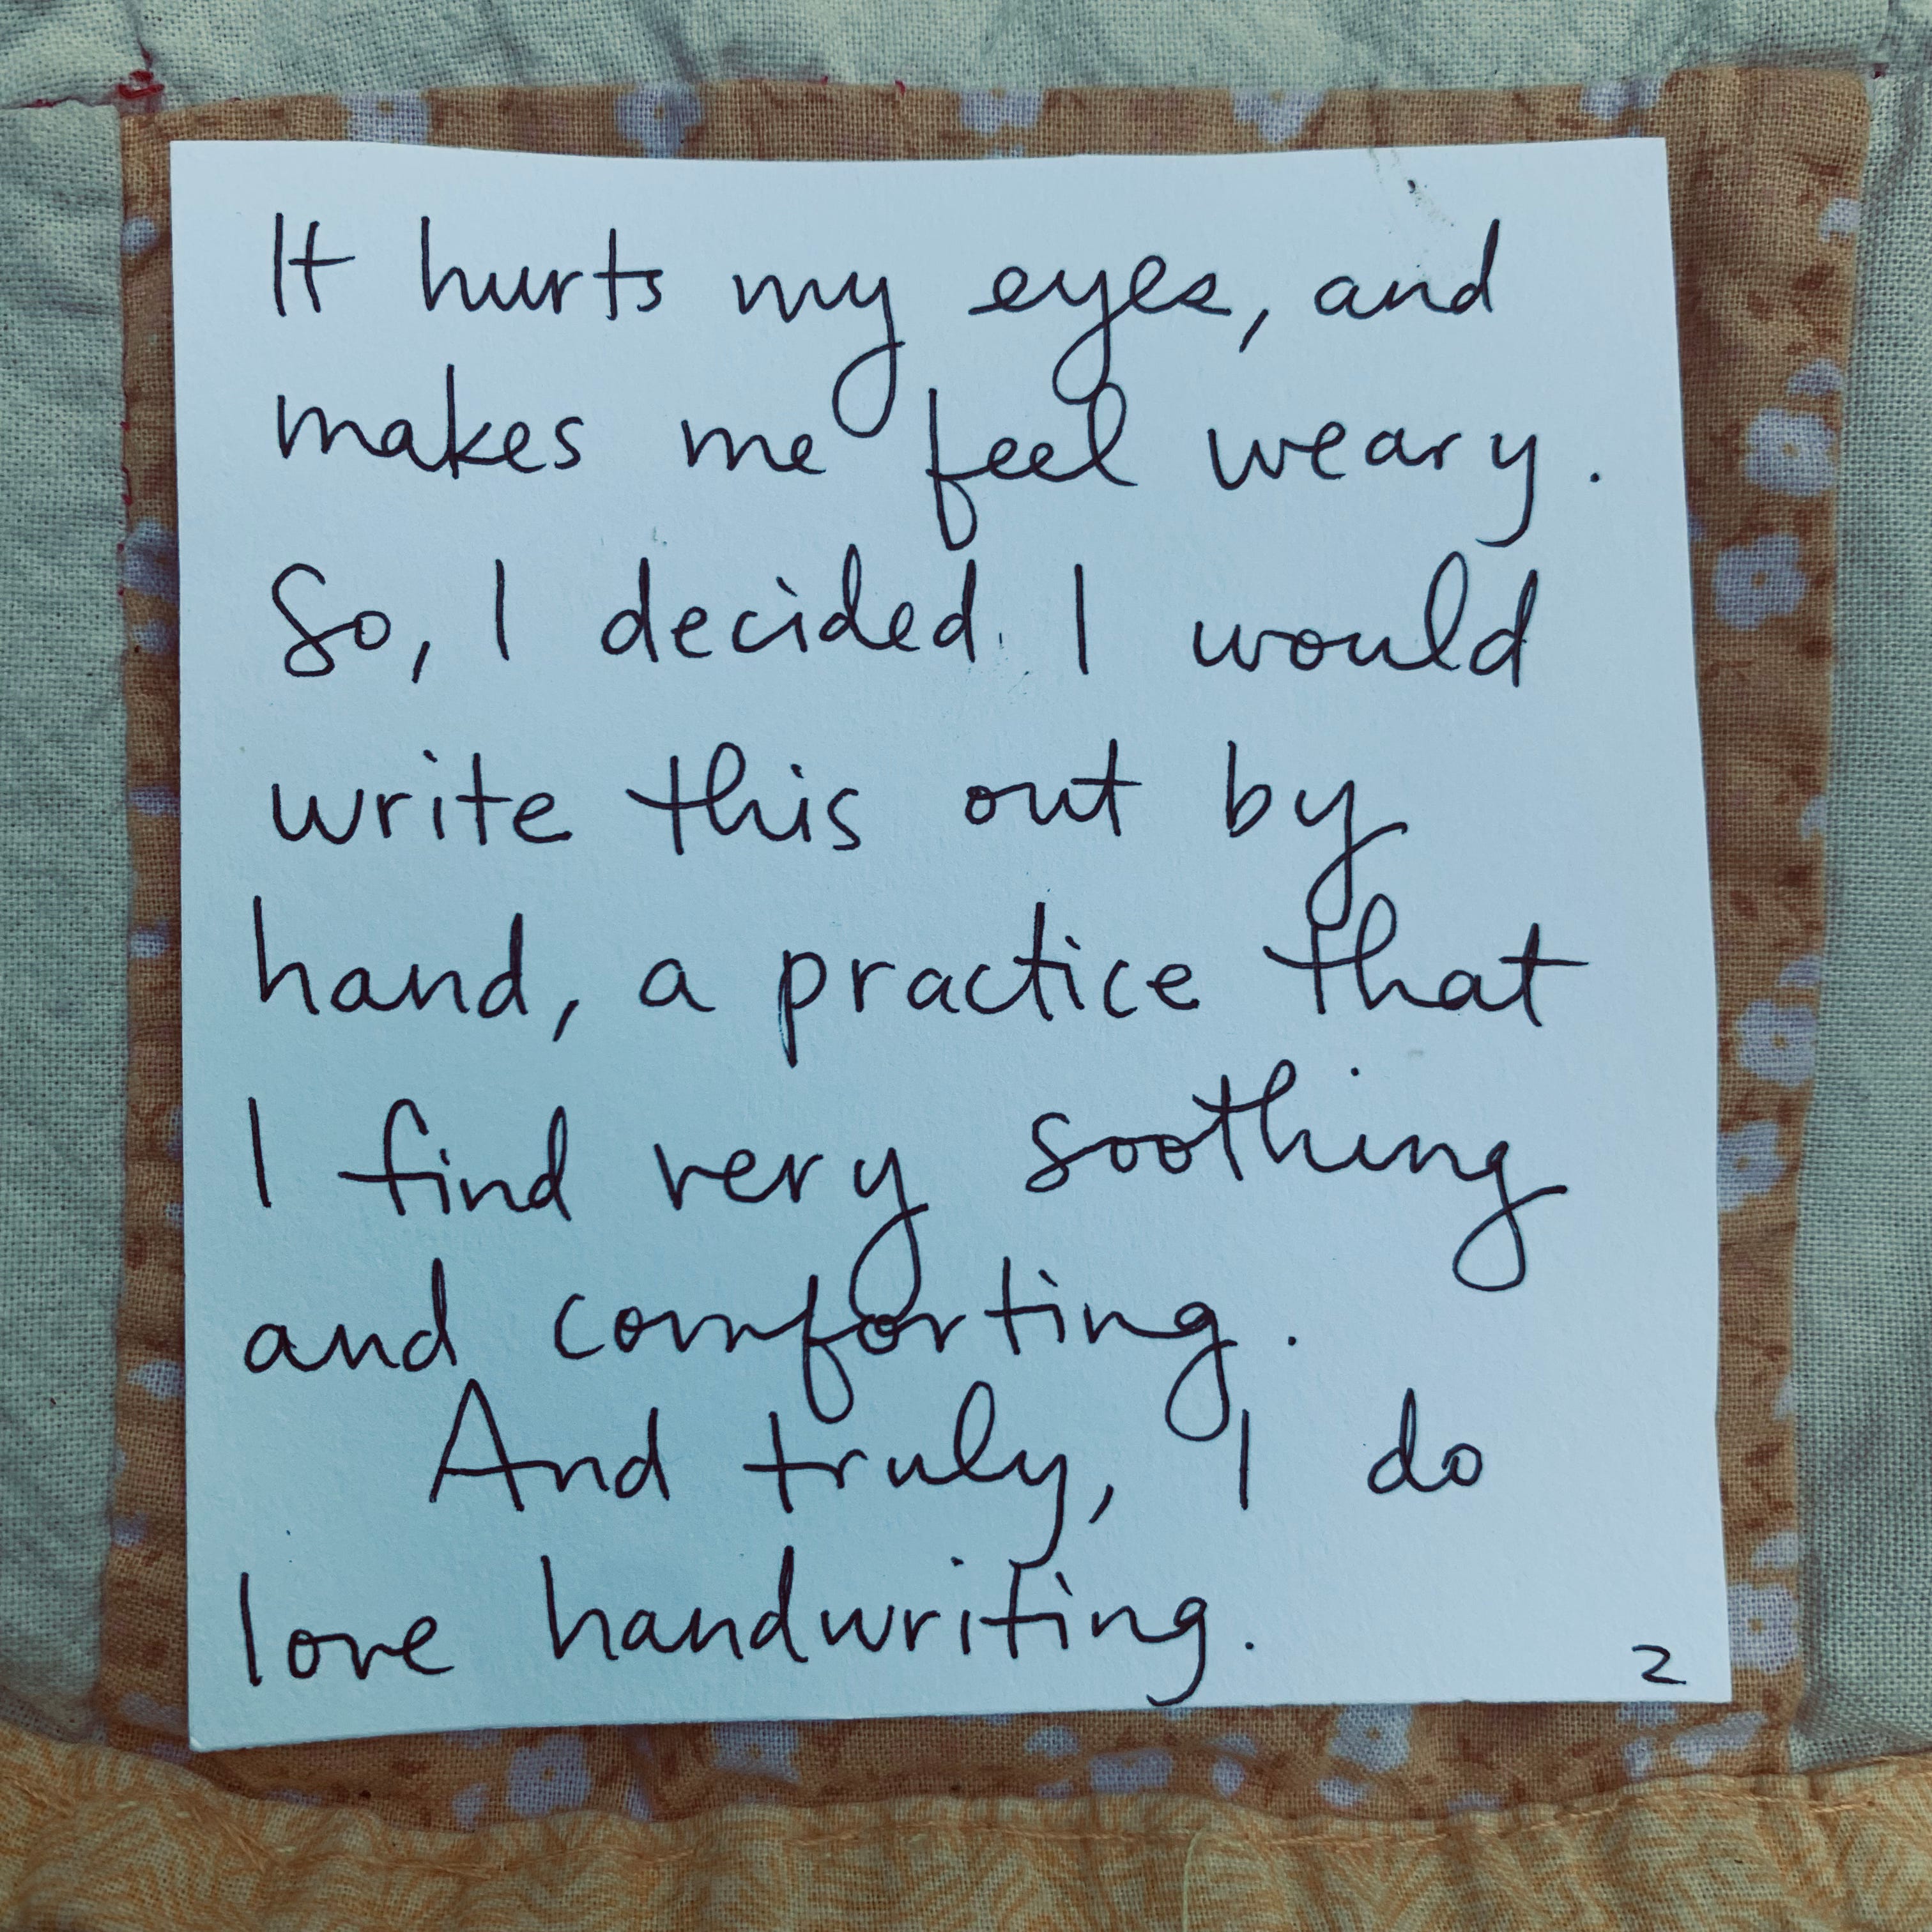 It hurts my eyes, and
makes me feel weary.
So, I decided I would
write this out by
hand, a practice that
I find very soothing
and comforting.
And truly, I do
love handwriting.
2